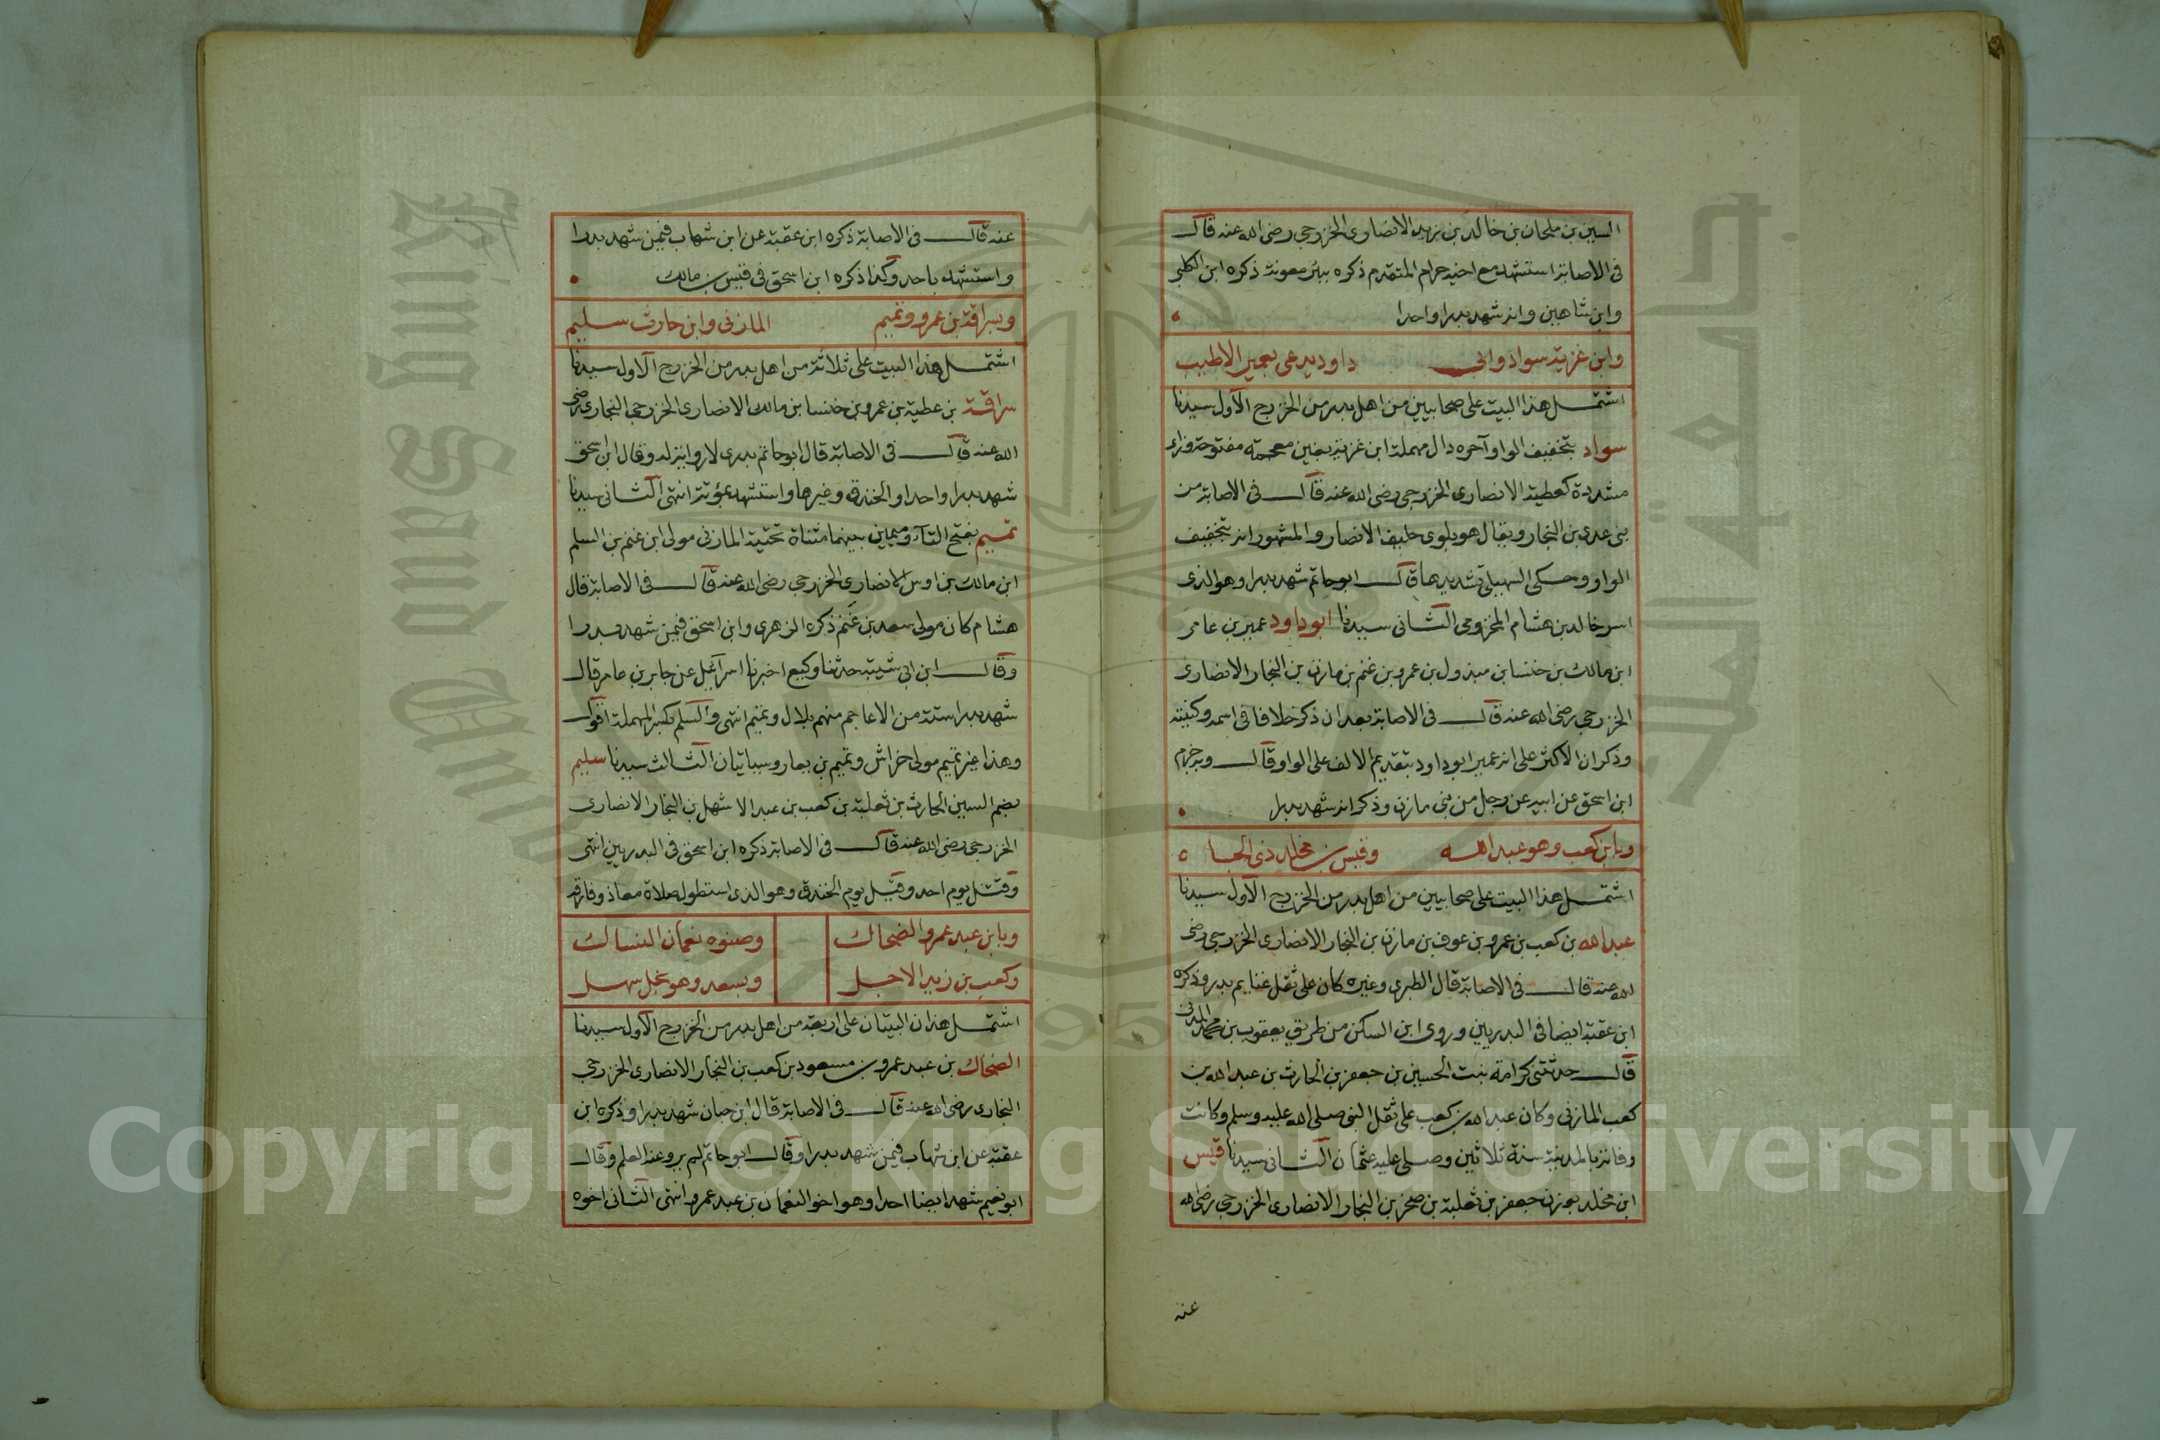 السين بن ملحان بن خالد بن زيد الانصارى الخزرجى رضى الله عنه قال
فى الاصابة استشهد مع اخيه حرام المتقدم ذكره ببئر معونة ذكره ابن الكلبى
وابن شاهين وانه شهد بدرا واحدا
وابن غزية سواد وابى داود يدعى بعمير الاطيب
اشتمل هذا البيت على صحابيين من اهل بدر من الخزرج الاول سيدنا
سواد بتخفيف الواو آخره دال مهملة ابن غزية بغين معجمة مفتوحة وزاء
مشددة كعطية الانصارى الخزرجى رضى الله عنه قال فى الاصابة من
بنى عدى بن النجار ويقال هو بلوى حليف الانصار والمشهور انه بتخفيف
الواو وحكى السهيلى تشديدها قال ابو حاتم شهد بدرا وهو الذى
اسر خالد بن هشام المخزومى الثانى سيدنا ابو داود عمير بن عامر
ابن مالك بن خنسا بن مبذول بن عمرو بن غنم بن مازن بن النجار الانصارى
الخزرجى رضى الله عنه قال فى الاصابة بعد ان ذكر خلافا فى اسمه وكنيته
وذكر ان الاكثر على انه عمير ابو داود بتقديم الالف على الواو قال وبه جزم
ابن اسحق عن ابيه عن رجل من بنى مازن وذكر انه شهد بدرا
وبابن كعب وهو عبد الله وقيس بن مخلد ذى الجا
اشتمل هذا البيت على صحابيين من اهل بدر من الخزرج الاول سيدنا
عبد الله بن كعب بن عمرو بن عوف بن مازن بن النجار الانصارى الخزرجى رضى
الله عنه قال فى الاصابة قال الطبرى وغيره كان على ثقل غنايم بدر وذكره
ابن عقبة ايضا فى البدريين وروى ابن السكن من طريق يعقوب بن محمد المدنى
قال حدثتنى كرامة بنت الحسين بن جعفر بن الحارث بن عبد الله بن
كعب المازنى وكان عبد الله بن كعب على ثقل النبى صلى الله عليه وسلم وكانت
وفاته بالمدينة سنة ثلاثين وصلى عليه عثمان الثانى سيدنا قيس
ابن مخلد بوزن جعفر بن ثعلبة بن صخر بن النجار الانصارى الخزرجى رضى الله
عنه
عنه قال فى الاصابة ذكره ابن عقبة عن ابن شهاب فيمن شهد بدرا
واستشهد باحد وكذا ذكره ابن اسحق فى قيس بن مالك
وبسراقة بن عمرو وتميم المازنى وابن حارث سليم
اشتمل هذا البيت على ثلاثة من اهل بدر من الخزرج الاول سيدنا
سراقة بن عطية بن عمرو بن خنسا بن مالك الانصارى الخزرجى النجارى رضى
الله عنه قال فى الاصابة قال ابو حاتم بدرى لا رواية له وقال ابن اسحق
شهد بدرا واحدا والخندق وغيرها واستشهد بمؤتة انتهى الثانى سيدنا
تميم بفتح التاء وميمين بينهما مثناة تحتية المازنى مولى ابن غنم بن السلم
ابن مالك بن اوس الانصارى الخزرجى رضى الله عنه قال فى الاصابة قال
هشام كان مولى سعد بن غنم ذكره الزهرى وابن اسحق فيمن شهد بدرا
وقال ابن ابى شيبة حدثنا وكيع اخبرنا اسرائيل عن جابر بن عامر قال
شهد بدرا ستة من الاعاجم منهم بلال وتميم انتهى والسلم بكسر المهملة اقول
وهذا غير تميم مولى خراش وتميم بن يعار وسياتيان الثالث سيدنا سليم
بضم السين الحارث بن ثعلبة بن كعب بن عبد الاشهل بن النجار الانصارى
الخزرجى رضى الله عنه قال فى الاصابة ذكره ابن اسحق فى البدريين انتهى
وقتل يوم احد وقيل يوم الخندق وهو الذى استطول صلاة معاذ وفارقه
وبابن عبد عمرو الضحاك وصنوه نعمان النساك
وكعب بن زيد الاجل وبسعد وهو نجل سهل
اشتمل هذان البيتان على اربعة من اهل بدر من الخزرج الاول سيدنا
الضحاك بن عبد عمرو بن مسعود بن كعب بن النجار الانصارى الخزرجى
النجارى رضى الله عنه قال فى الاصابة قال ابن حبان شهد بدرا وذكره ابن
عقبة عن ابن شهاب فيمن شهد بدرا وقال ابو حاتم لم يرو عنه العلم وقال
ابو نعيم شهد ايضا احدا وهو اخو النعمان بن عبد عمرو انتهى الثانى اخوه
Copyright © King Saud University
King Saud University
1957